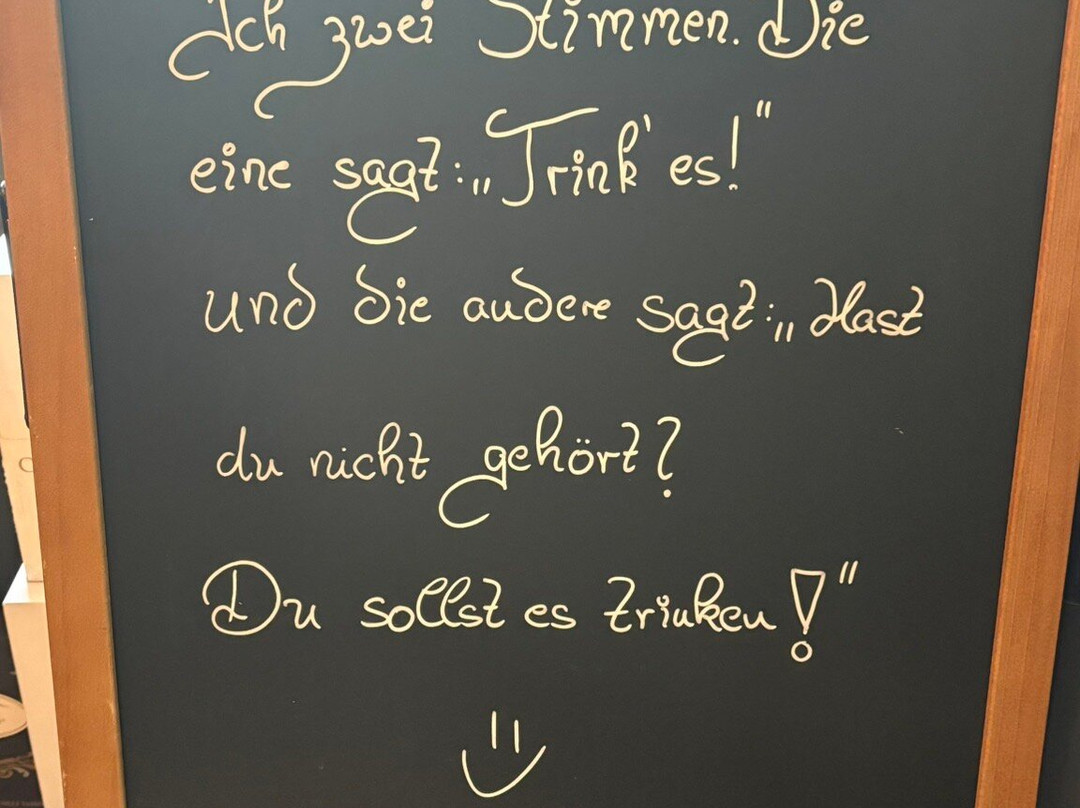 Ich zwei Stimmen. Die
eine sagt: „Trink' es!"
und die andere sagt: „Hast
du nicht gehört?
Du sollst es trinken!"